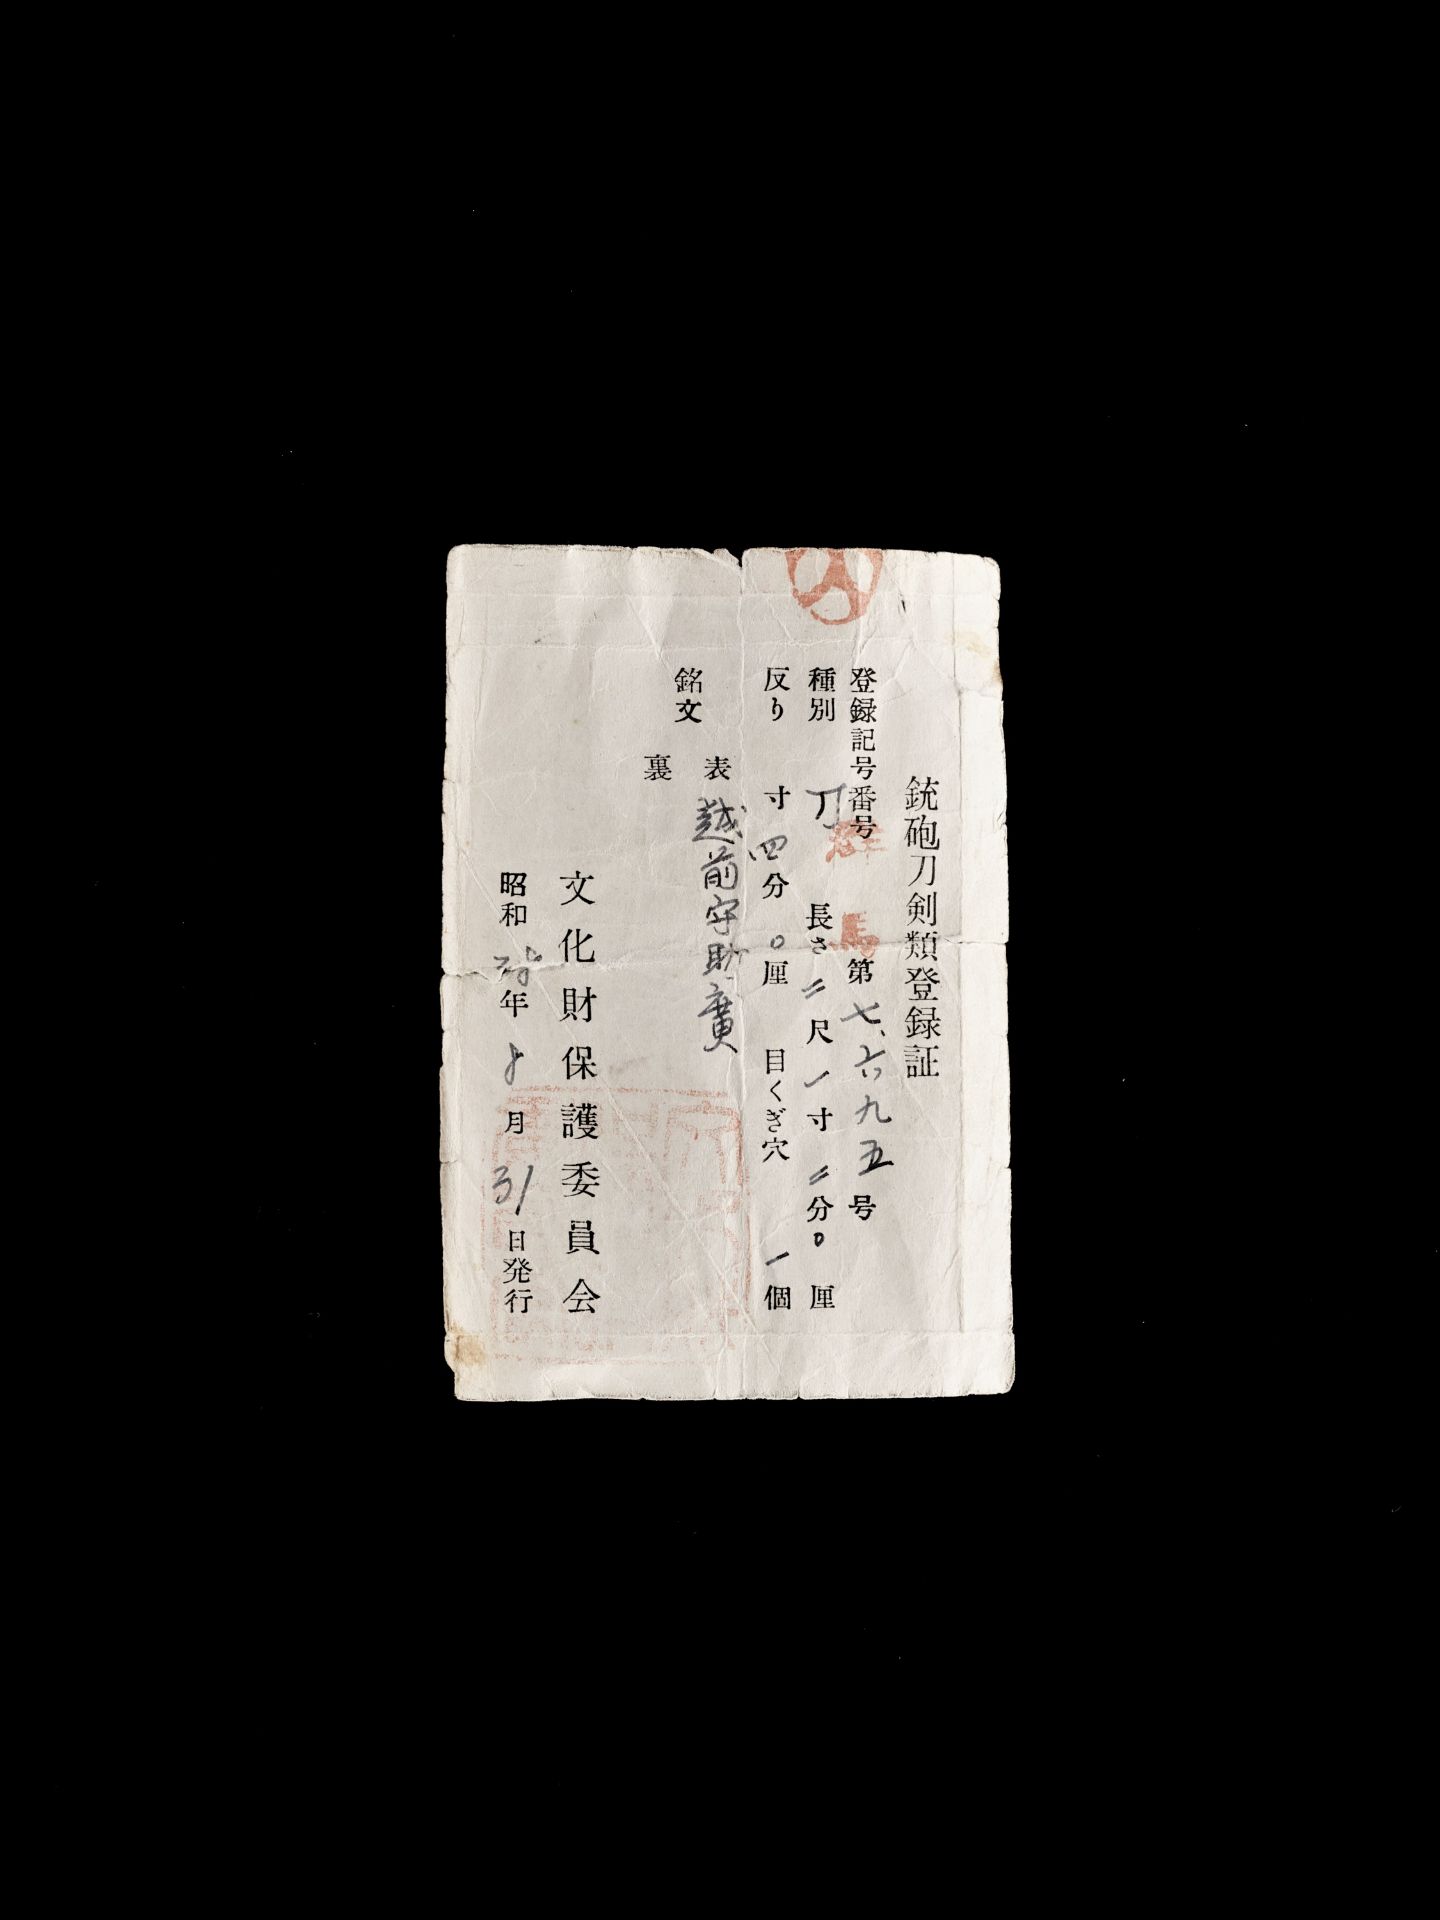 銃砲刀剣類登録証
登録記号番号 群馬 第七、六九五号
種別 刀 長さ 二尺一寸二分〇厘
反り 寸四分〇厘 目くぎ穴 一個
銘文
表 越前守助廣
裏
文化財保護委員会
昭和 年 月31日発行